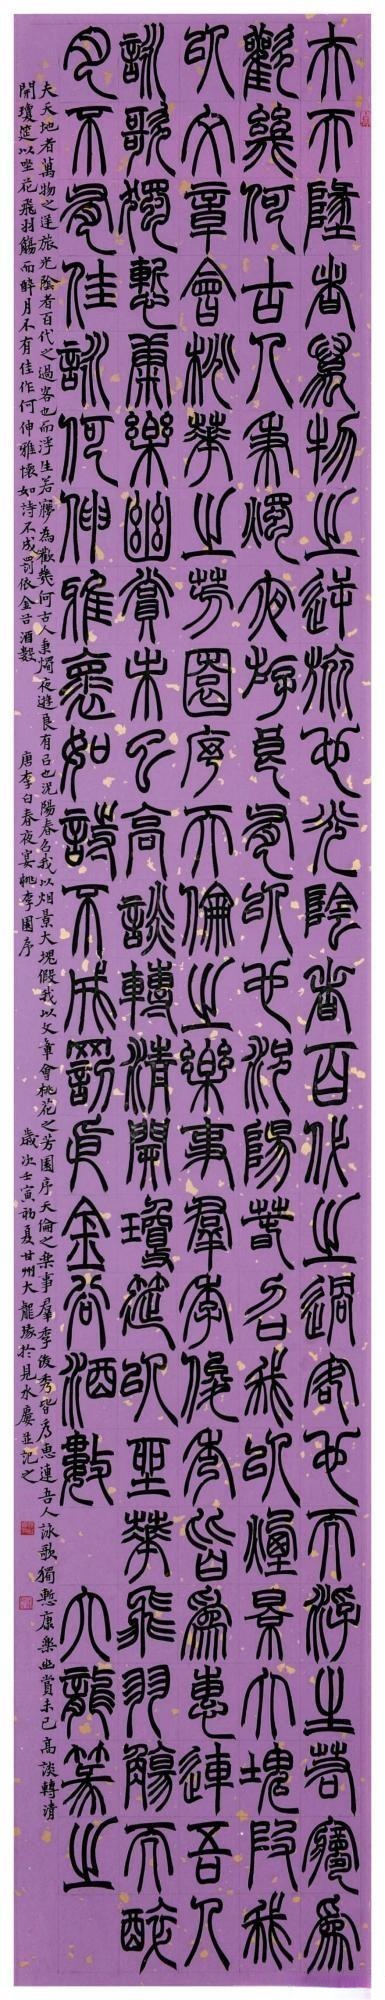 夫天墬者萬物之逆旅也光陰者百代之過客也而浮生若夢爲
歡幾何古人秉燭夜游良有以也況陽春召我以煙景大塊假我
以文章會桃華之芳園序天倫之樂事羣季俊秀皆爲惠連吾人
詠歌獨慙康樂幽賞未已高談轉清開瓊筵以坐華飛羽觴而醉
月不有佳詠何伸雅褱如詩不成罰依金谷酒數 大龍篆之
夫天地者萬物之逆旅光陰者百代之過客也而浮生若夢為歡幾何古人秉燭夜遊良有㠯也況陽春召我以烟景大塊假我以文章會桃花之芳園序天倫之樂事羣季俊秀皆為惠連吾人詠歌獨慙康樂幽賞未已高談轉清
開瓊筵以坐花飛羽觴而醉月不有佳作何伸雅懷如詩不成罰依金谷酒數 唐李白春夜宴桃李園序 歲次壬寅初夏甘州大龍篆於見水廔並記之